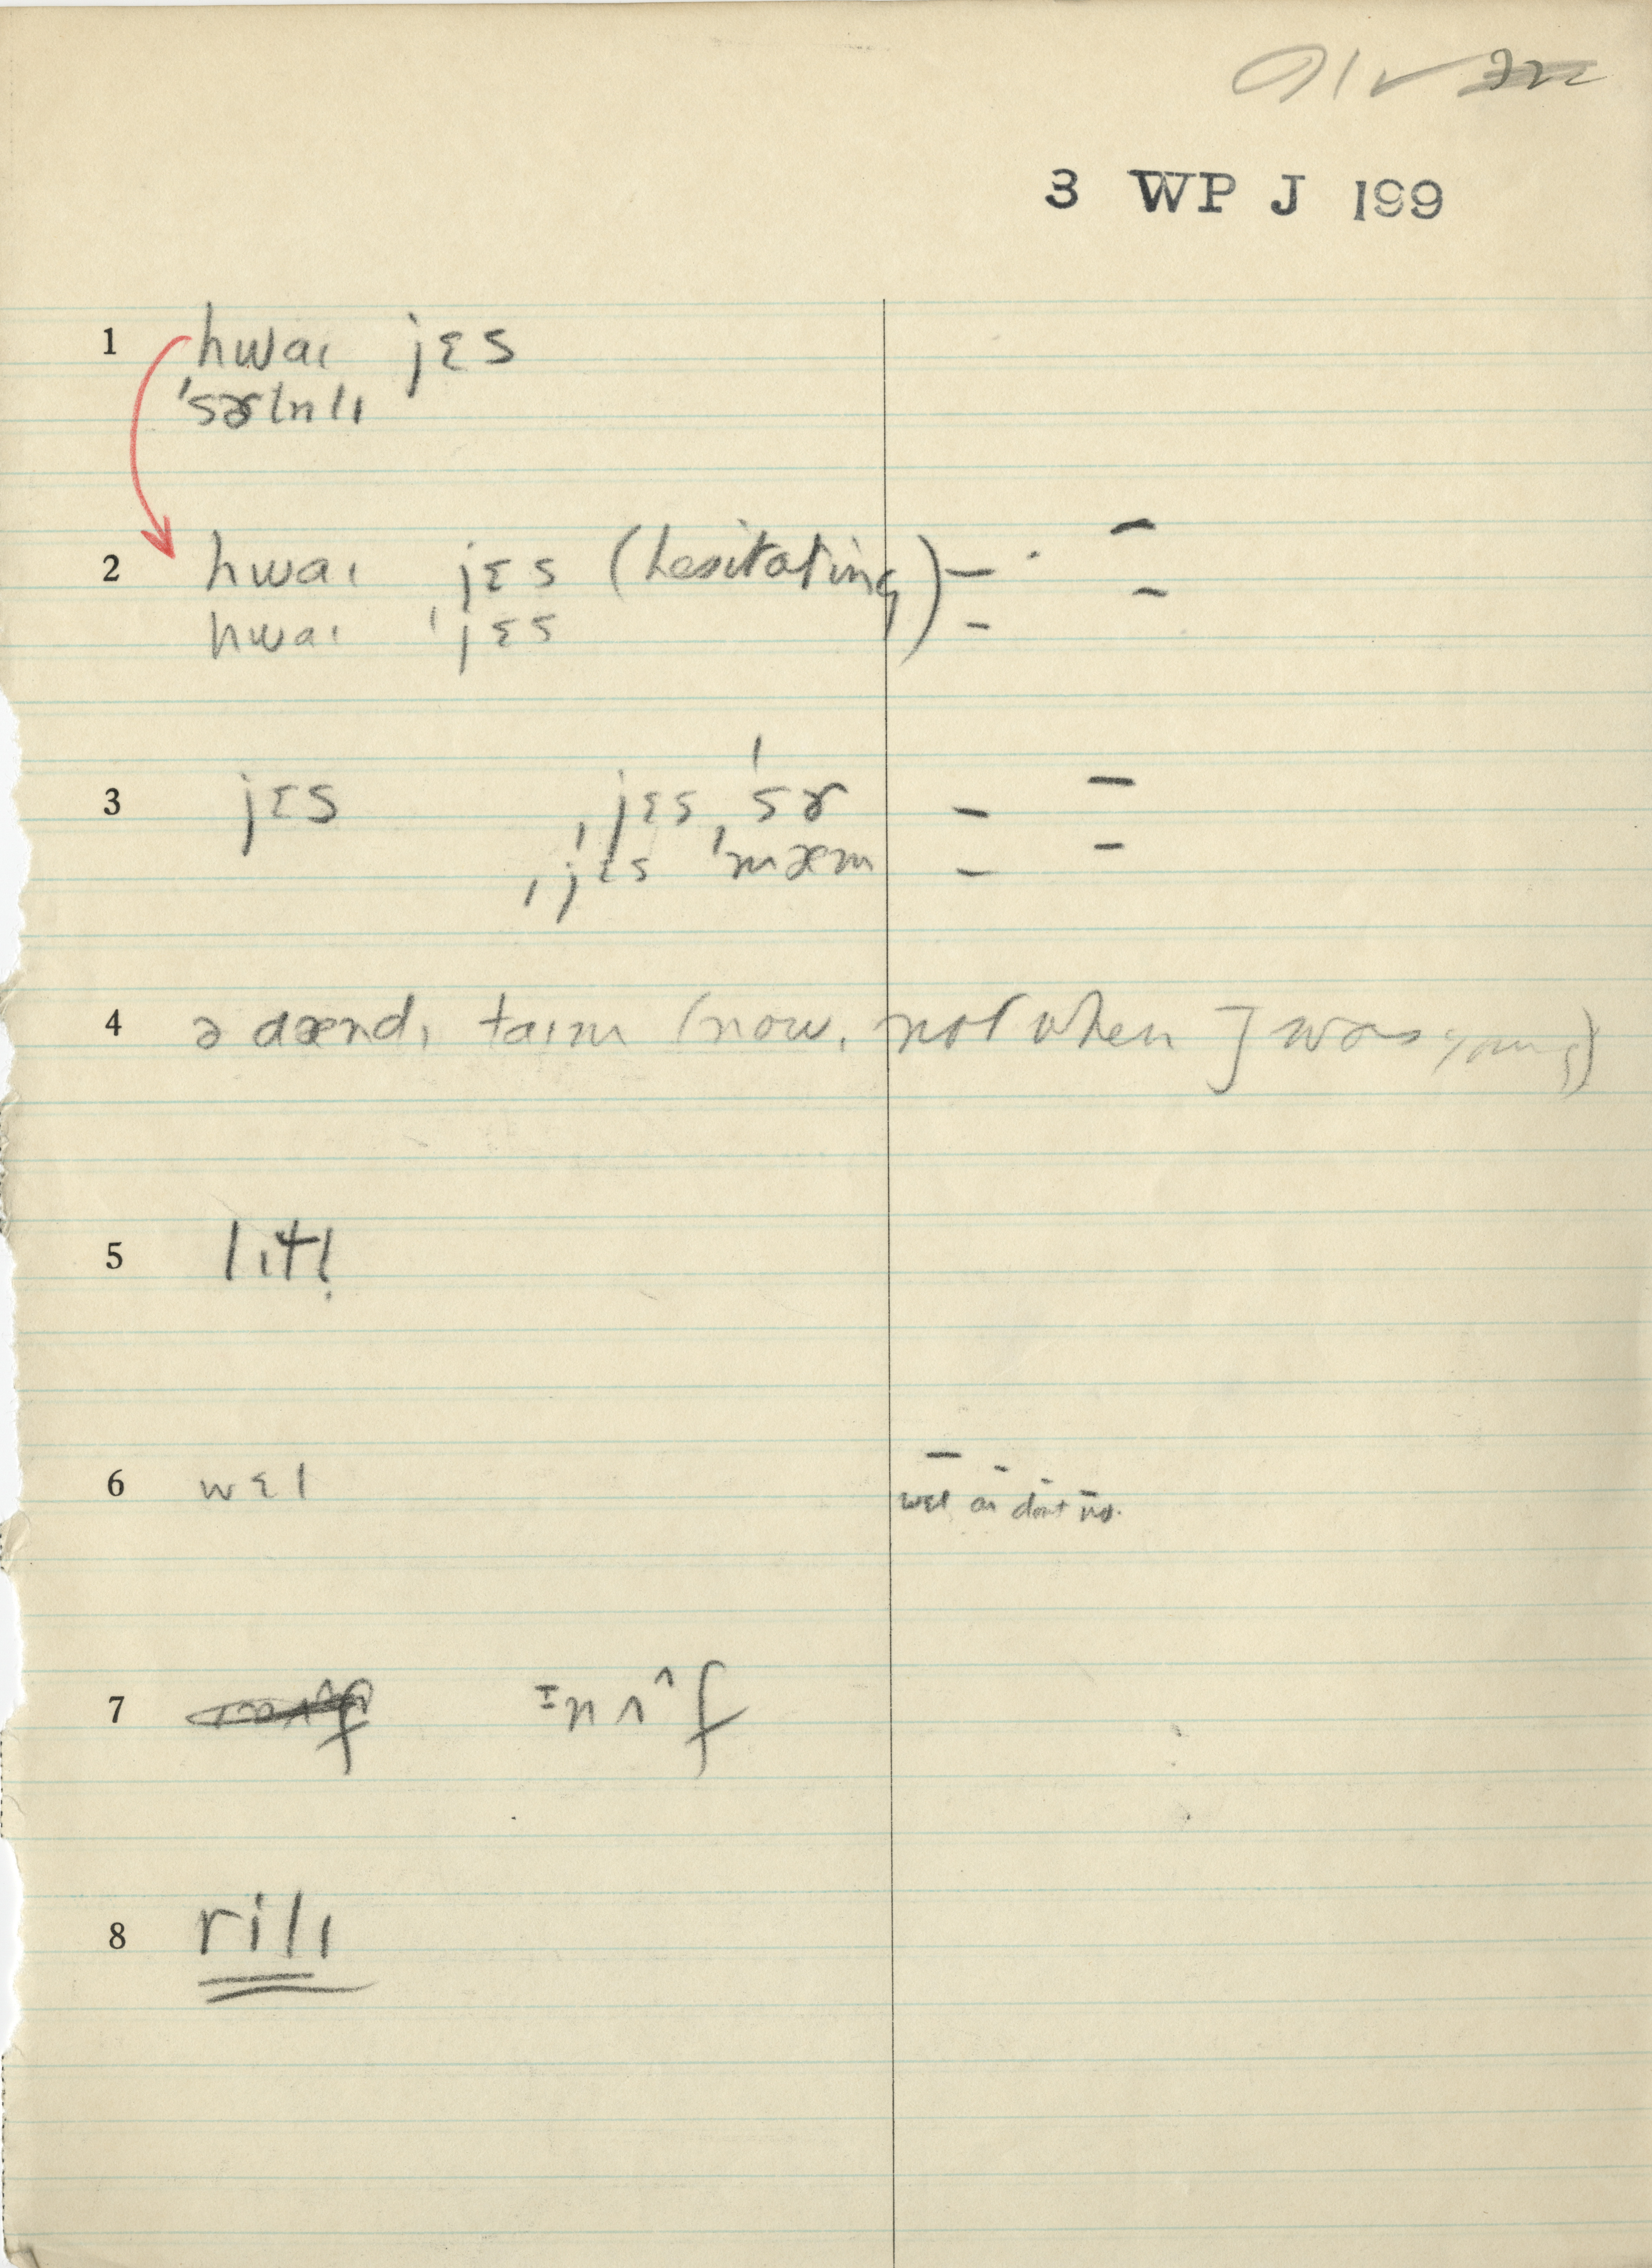 3 WP J 199
1 hwaɪ jɛs
ˈsɚtnlɪ
2 hwaɪ jɛs (hesitating)
hwaɪ ˈjɛs
3 jɛs ˌjɛs ˈsɚ
ˌjɛs ˈmæm
4 ə dændɪ taɪm (now, not when I was young)
5 lɪtl̩
6 wɛl wɛl aɪ dont no.
7 ɪnʌ^f
8 rilɪ